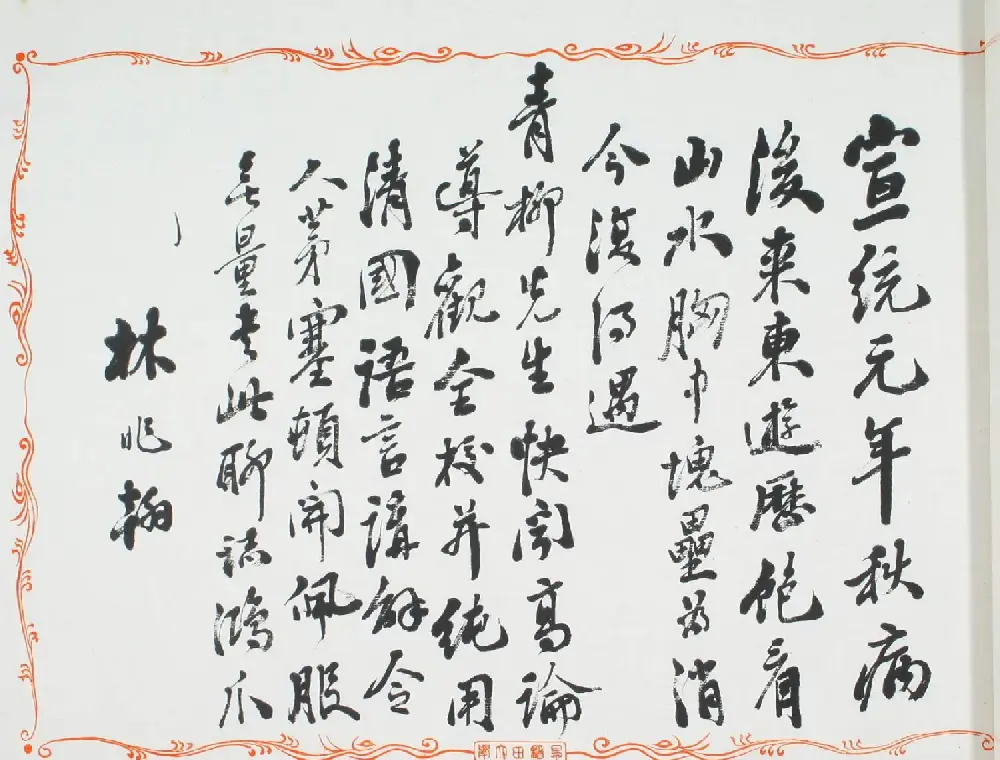 宣統元年秋病
後来東遊歷飽看
山水胸中塊壘為消
今復得遇
青柳先生快聞高論
導觀全校并純用
清國語言講解令
人茅塞頓開佩服
無量書此聊誌鴻爪
林兆翰